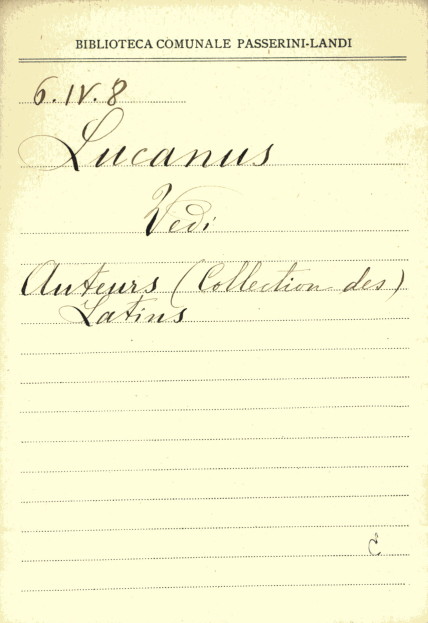 BIBLIOTECA COMUNALE PASSERINI-LANDI
6.IV.8
Lucanus
Vedi
Auteurs (Collection des)
Latins